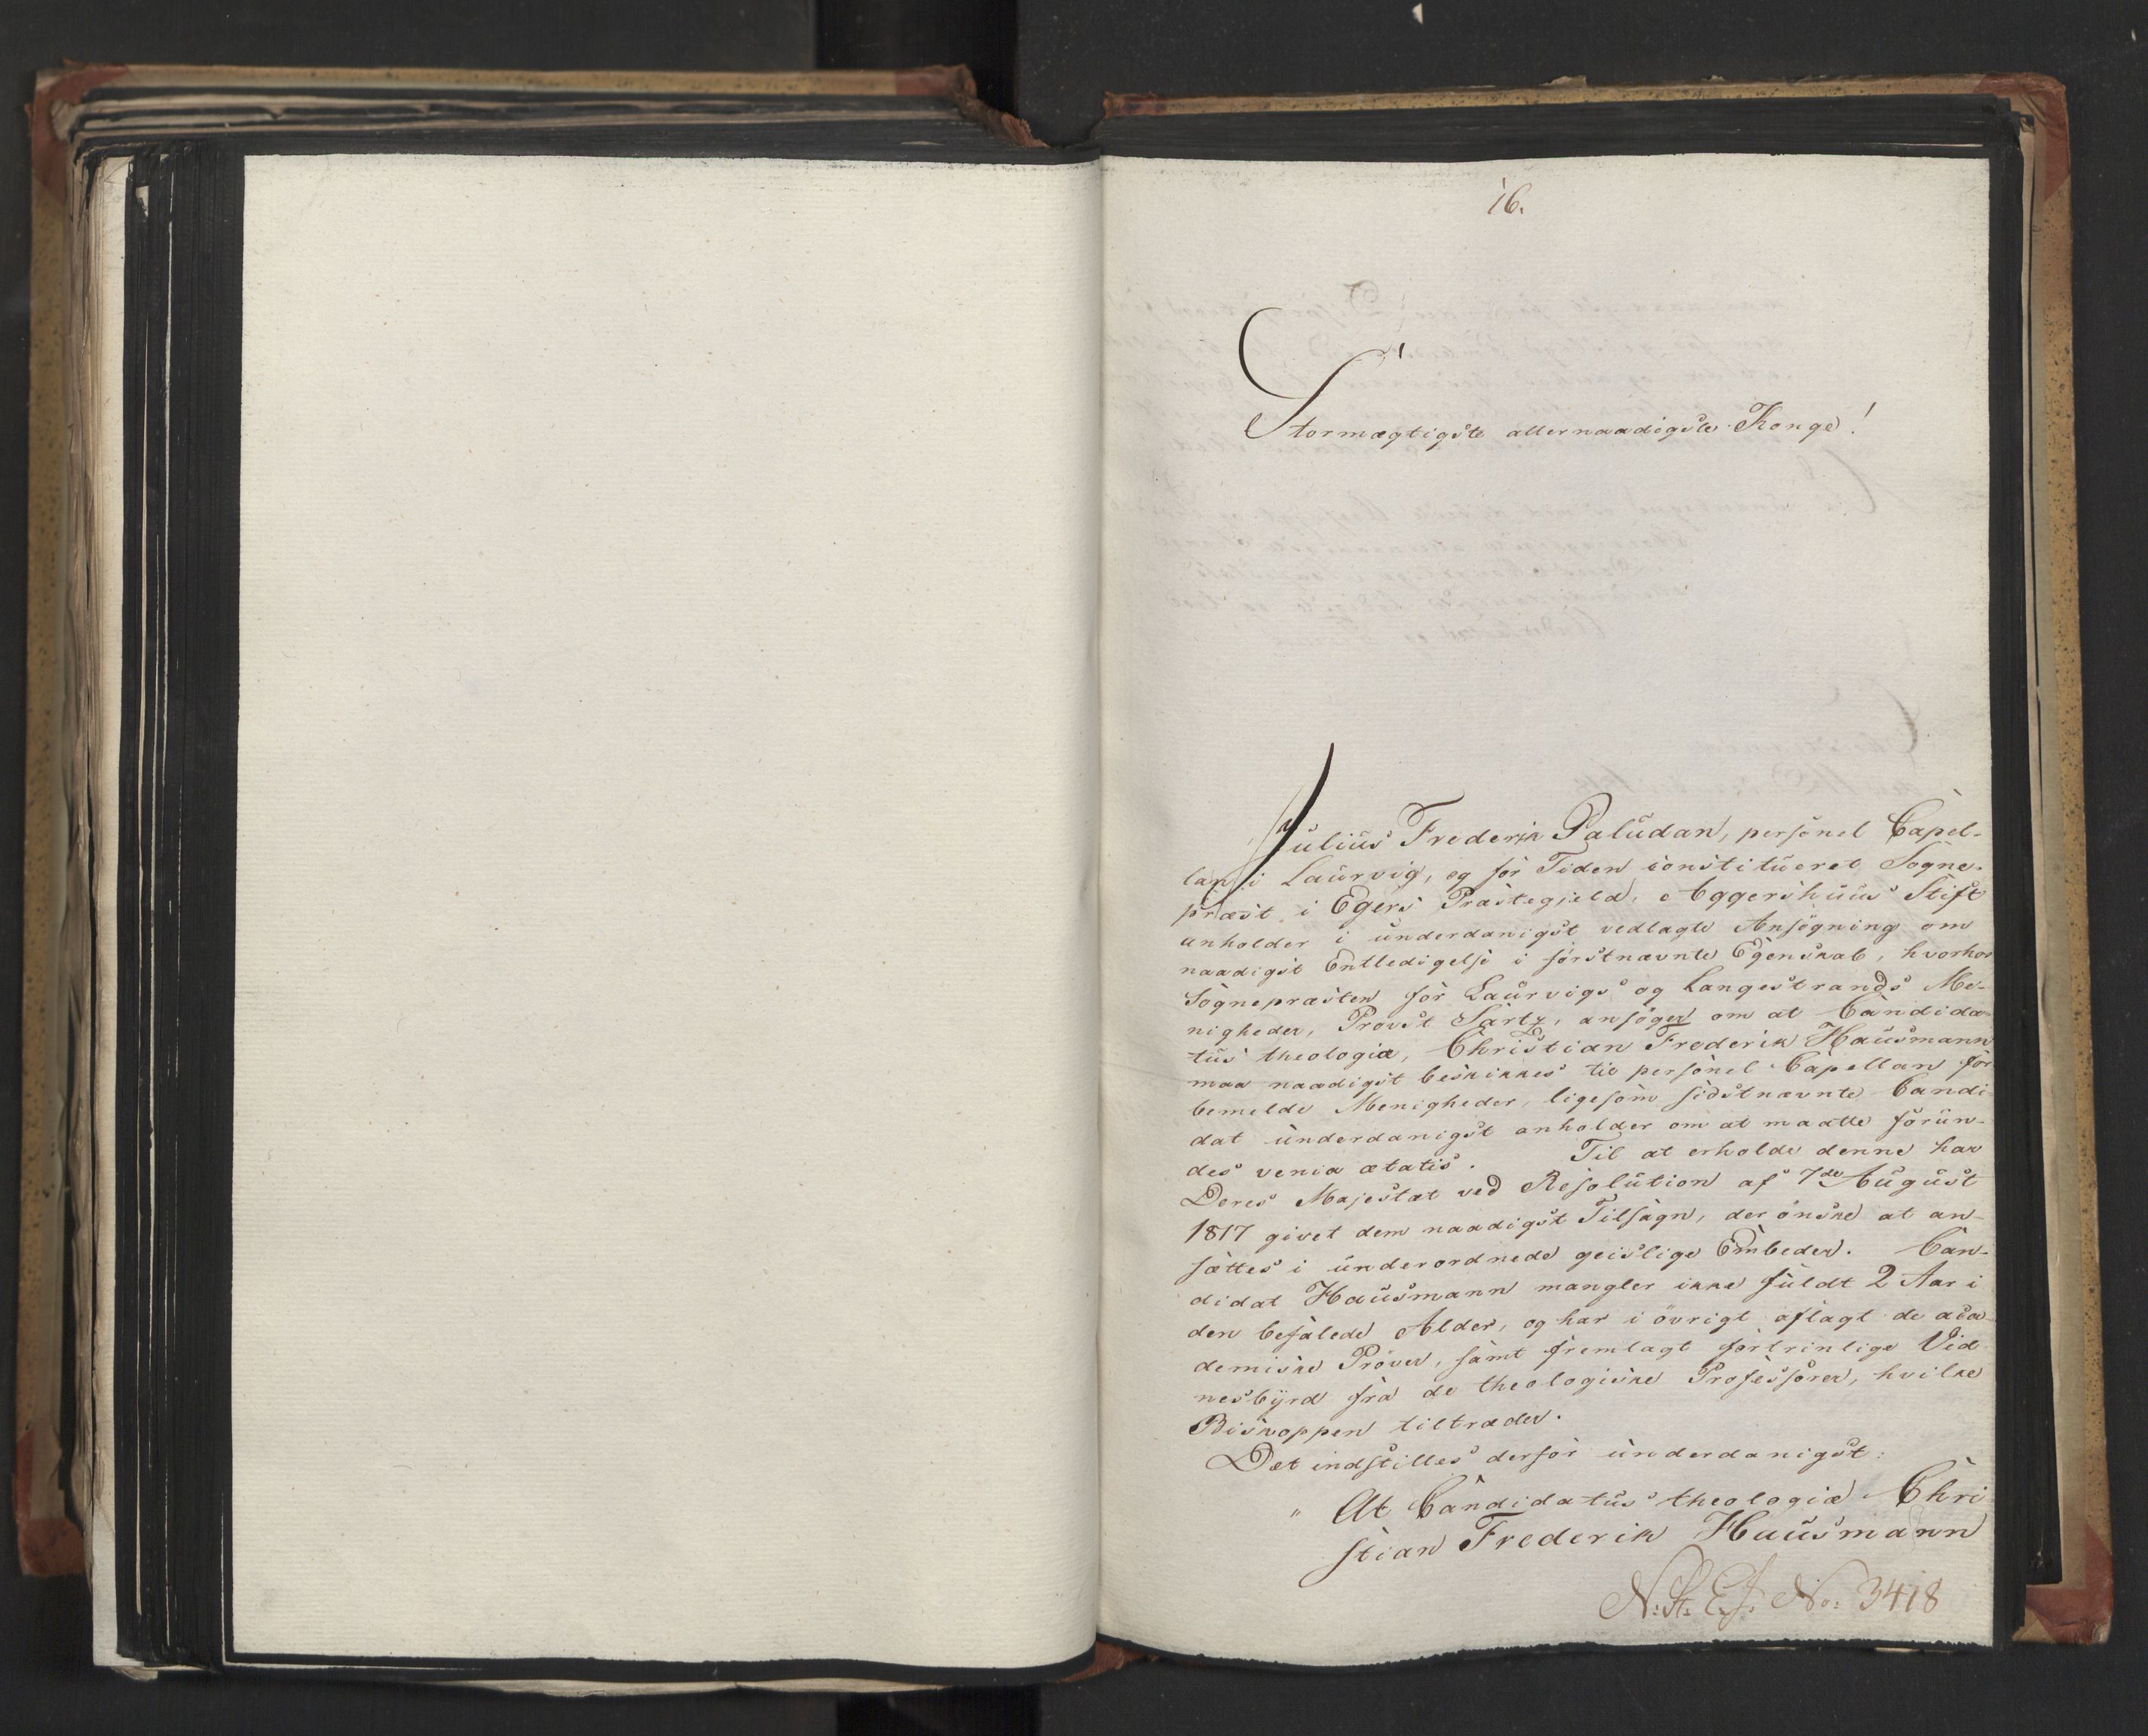 16.
Stormægtigste allernaadigste Konge!
Julius Frederik Paludan, personel Capel-
lan i Laurvig, og for Tiden constitueret Sogne-
præst i Egers Præstegjeld, Aggershuus Stift
anholder i underdanigst vedlagte Ansøgning om
naadigst Entledigelse i førstnævnte Egenskab, hvorhos
Sognepræsten for Laurvigs og Langestrands Me-
nigheder, Provst Sartz, ansøger om at Candida-
tus theologiæ, Christian Frederik Hausmann
maa naadigst beskikkes til personel Capellan for
bemeldte Menigheder, ligesom sidstnævnte Candi-
dat underdanigst anholder om at maatte forun-
des venia ætatis. Til at erholde denne har
Deres Majestæt ved Resolution af 7de August
1817 givet dem naadigst Tilsagn, der ønske at an-
sættes i underordnede geistlige Embeder. Can-
didat Hausmann mangler ikke fuldt 2 Aar i
den befalede Alder, og har i øvrigt aflagt de aca-
demiske Prøver, samt fremlagt fortrinlige Vid-
nesbyrd fra de theologiske Professorer, hvilke
Biskoppen tiltræder.
Det indstilles derfor underdanigst:
" At Candidatus theologiæ Chri-
stian Frederik Hausmann
N. St. E. J. No: 3418